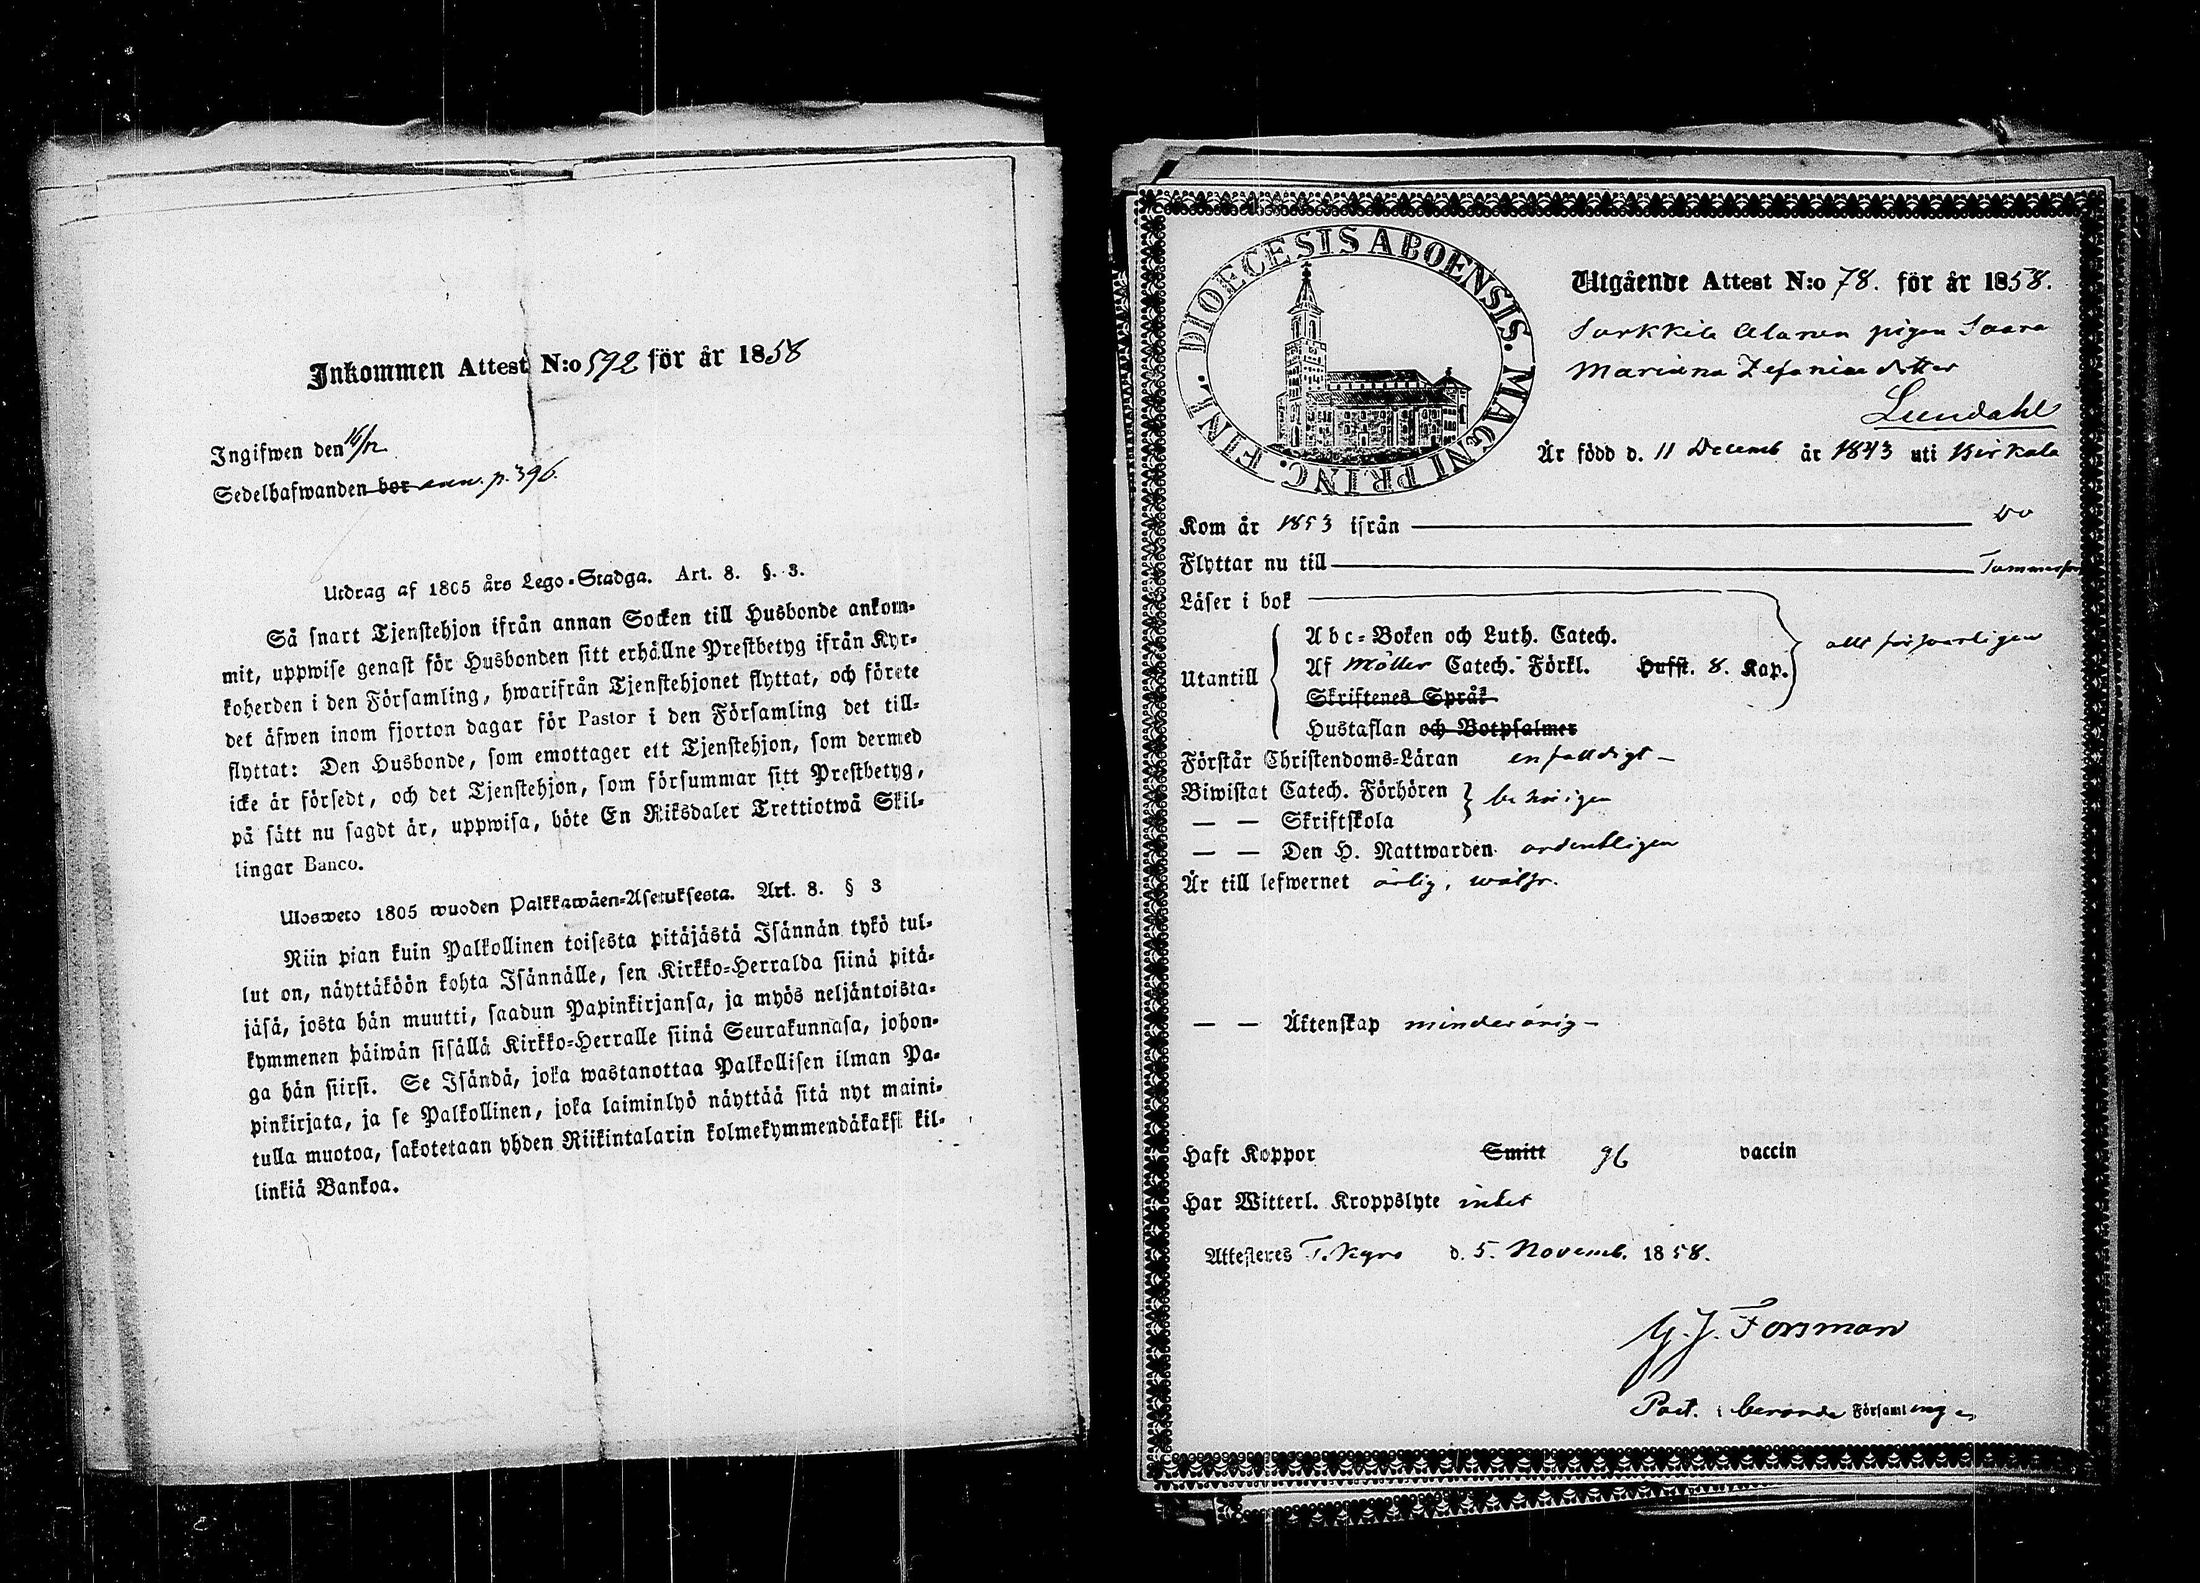 Inkommen Attest N:o 592 för år 1858
Ingifwen den 16/12
Sedelhafwanden bor ann. p. 396.
Utdrag af 1805 års Lego-Stadga. Art. 8. §. 3.
Så snart Tjenstehjon ifrån annan Socken till Husbonde ankom-
mit, uppwise genast för Husbonden sitt erhållne Prestbetyg ifrån Kyr-
koherden i den Församling, hwarifrån Tjenstehjonet flyttat, och förete
det äfwen inom fjorton dagar för Pastor i den Församling det till-
flyttat: Den Husbonde, som emottager ett Tjenstehjon, som dermed
icke är försedt, och det Tjenstehjon, som försummar sitt Prestbetyg,
på sätt nu sagdt är, uppwisa, böte En Riksdaler Trettiotwå Skil-
lingar Banco.
Ulosweto 1805 wuoden Palkkawäen-Asetuksesta. Art. 8. § 3
Niin pian kuin Palkollinen toisesta pitäjästä Isännän tykö tul-
lut on, näyttäköön kohta Isännälle, sen Kirkko-Herralda siinä pitä-
jäsä, josta hän muutti, saadun Papinkirjansa, ja myös neljäntoista-
kymmenen päiwän sisällä Kirkko-Herralle siinä Seurakunnasa, johon-
ga hän siirsi. Se Isändä, joka wastanottaa Palkollisen ilman Pa-
pinkirjata, ja se Palkollinen, joka laiminlyö näyttää sitä nyt maini-
tulla muotoa, sakotetaan yhden Riikintalarin kolmekymmendäkaksi kil-
linkiä Bankoa.
DIOECESIS ABOENSIS. MAGNI PRINC. FINL.
Utgående Attest N:o 78. för år 1858.
Sarkkila Alanen pigan Saara
Mariana Zefanias dotter
Lundahl
Är född d. 11 Decemb år 1843 uti Birkala
Kom år 1853 ifrån Do
Flyttar nu till Tammerfors
Läser i bok
Abc-Boken och Luth. Catech.
Utantill Af Möller Catech. Förkl. Hufst. 8. Kap. allt försvarligen
Skriftenes Språk
Hustaflan och Botpsalmer
Förstår Christendoms-Läran enfaldigt
Biwistat Catech. Förhören behörigen
— — Skriftskola
— — Den H. Nattwarden ordentligen
Är till lefwernet ärlig, wälfr.
— — Äktenskap minderårig
Haft Koppor Smitt gh vaccin
Har Witterl. Kroppslyte intet
Attesteres T. Kyro d. 5. Novemb. 1858.
G. J. Forsman
Past. i berörde Församlingen